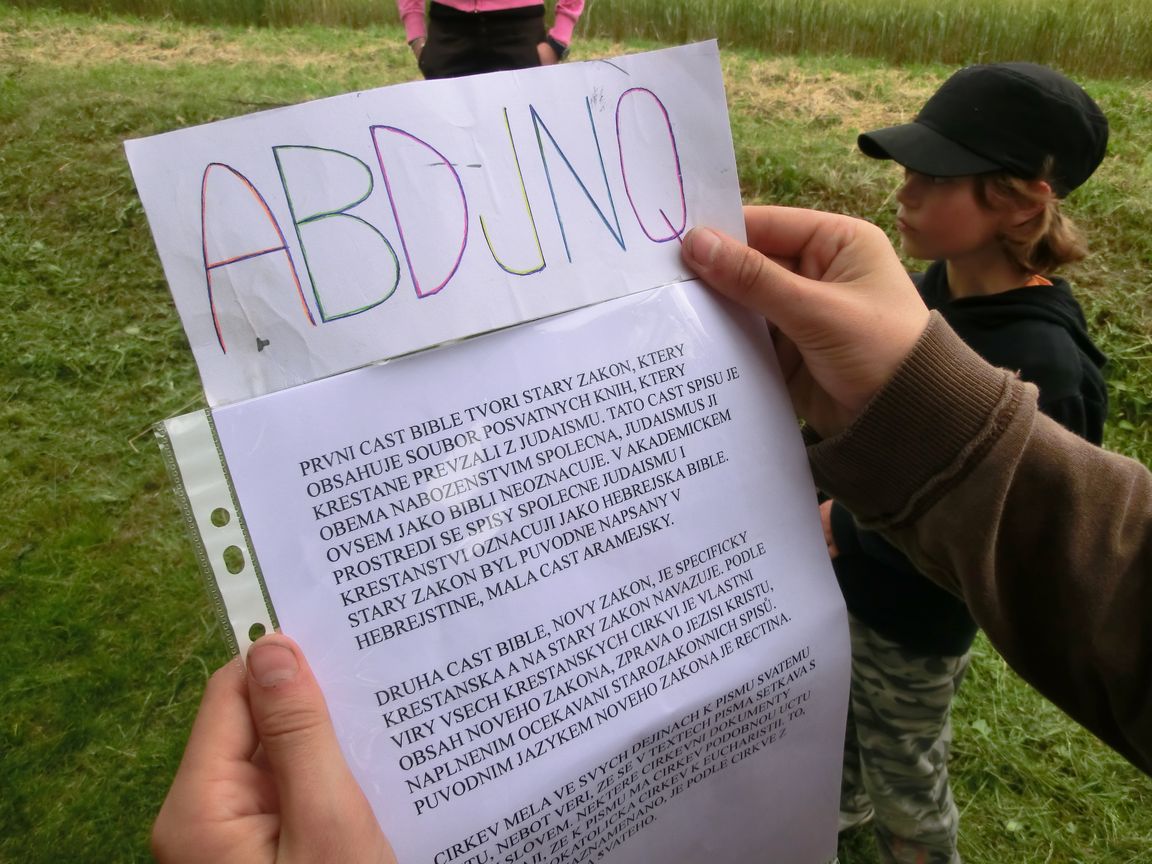 ABDJNQ
PRVNI CAST BIBLE TVORI STARY ZAKON, KTERY
OBSAHUJE SOUBOR POSVATNYCH KNIH, KTERY
KRESTANE PREVZALI Z JUDAISMU. TATO CAST SPISU JE
OBEMA NABOZENSTVIM SPOLECNA, JUDAISMUS JI
OVSEM JAKO BIBLI NEOZNACUJE. V AKADEMICKEM
PROSTREDI SE SPISY SPOLECNE JUDAISMU I
KRESTANSTVI OZNACUJI JAKO HEBREJSKA BIBLE.
STARY ZAKON BYL PUVODNE NAPSANY V
HEBREJSTINE, MALA CAST ARAMEJSKY.
DRUHA CAST BIBLE, NOVY ZAKON, JE SPECIFICKY
KRESTANSKA A NA STARY ZAKON NAVAZUJE. PODLE
VIRY VSECH KRESTANSKYCH CIRKVI JE VLASTNI
OBSAH NOVEHO ZAKONA, ZPRAVA O JEZISI KRISTU,
NAPLNENIM OCEKAVANI STAROZAKONNICH SPISŮ.
PUVODNIM JAZYKEM NOVEHO ZAKONA JE RECTINA.
CIRKEV MELA VE SVYCH DEJINACH K PISMU SVATEMU
TU, NEBOT VERI, ZE SE V TEXTECH PISMA SETKAVA S
SLOVEM. NEKTERE CIRKEVNI DOKUMENTY
JI, ZE K PISMU MA CIRKEV PODOBNOU UCTU
CIRKEV K EUCHARISTII. TO,
JE PODLE CIRKVE Z
SVATEHO.